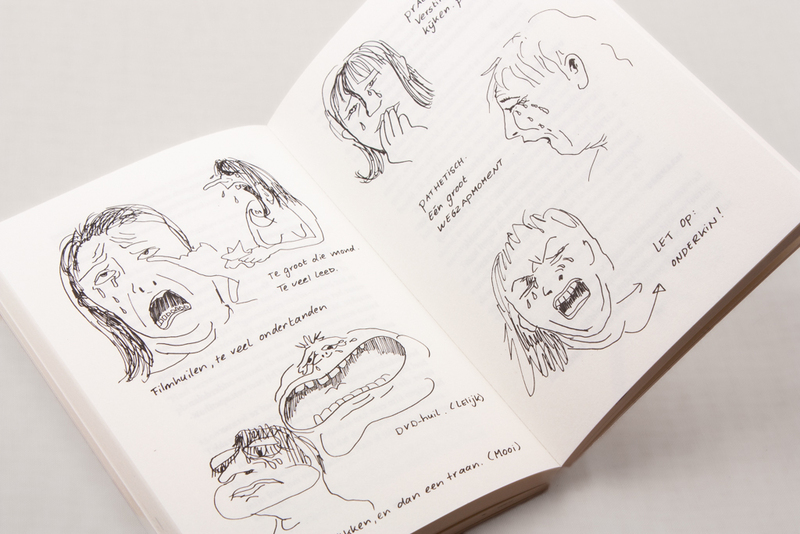 Te groot die mond.
Te veel leed.
Filmhuilen, te veel ondertanden
DVD-huil. (Lelijk)
en dan een traan. (Mooi)
kijken.
PATHETISCH.
Eén groot
WEGZAPMOMENT
LET OP:
ONDERKIN!